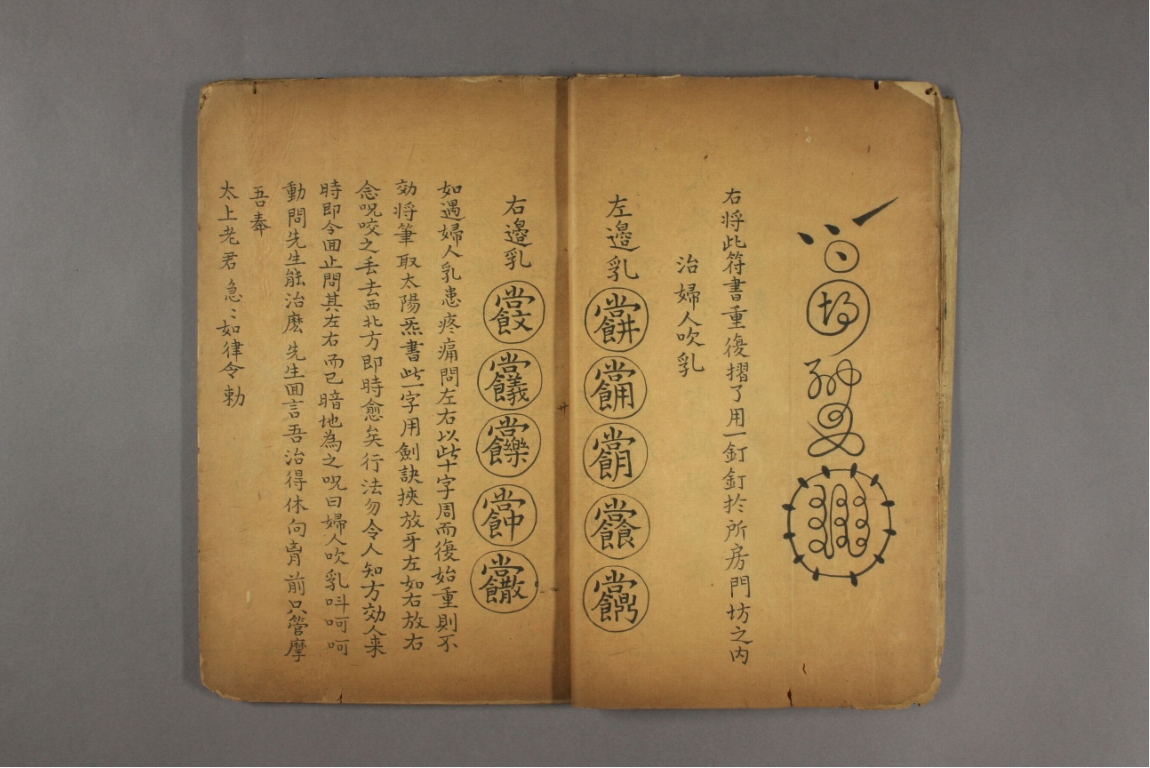 右将此符書重復摺了用一釘釘扵所房門坊之內
治婦人吹乳
左邉乳
右邉乳
如遇婦人乳患疼痛問左右以此十字周而復始重則不
効将筆取太陽炁書此一字用劍訣挾放牙左如右放右
念呪咬之丢去西北方即時愈矣行法勿令人知方効人来
時即令囬止問其左右而已暗地為之呪曰婦人吹乳呌呵呵
動問先生能治麽先生囬言吾治得休向胷前只管摩
吾奉
太上老君急〻如律令勅